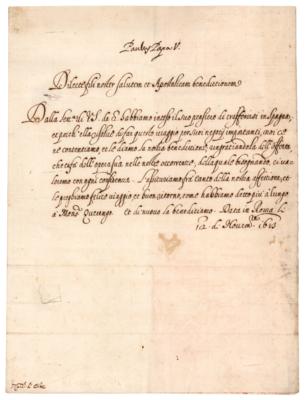 Paulus Papa V.
Dilecte fili nostri salutem et Apostolicam benedictionem
Dalla di V.S. de habbiamo inteso il suo pensiero di trasferirsi in Spagna,
et perche di far questo viaggio per suoi negotij importanti, noi ce
ne contentiamo, et le diamo la nostra benedittione, ringratiandola dell'offerta,
che ci fa dell'opera sua nelle nostre occorrenze, della quale bisognando, ci va-
leremo con ogni confidenza. della nostra affettione, et
le preghiamo felice viaggio, et buon ritorno, come habbiamo detto più à lungo
à Mons. et di nuovo la benediciamo. Data in Roma li
12 di Novem. 1613